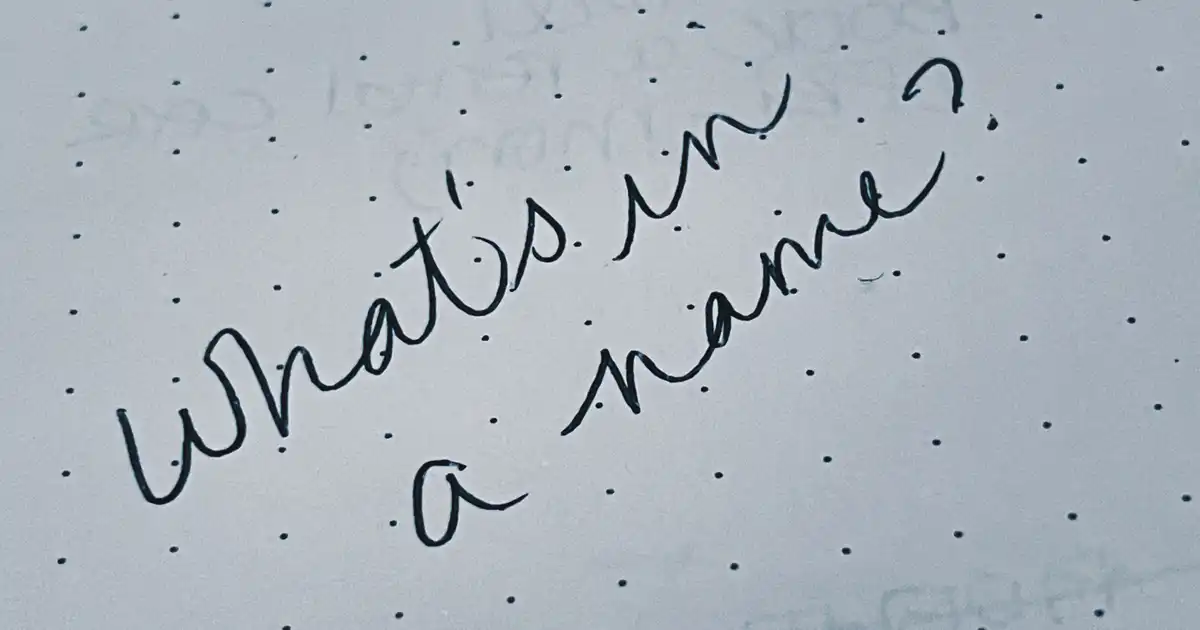 What's in
a name?